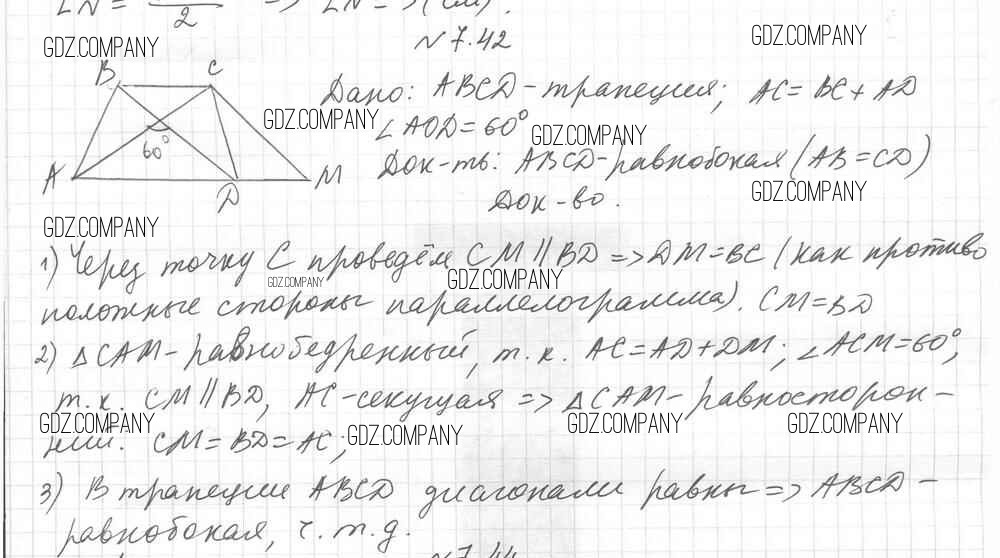 LN = 2 => LN = (см).
N 7.42
GDZ.COMPANY
GDZ.COMPANY
B C
Дано: ABCD - трапеция; AC = BC + AD
GDZ.COMPANY
∠AOD = 60°
GDZ.COMPANY
60°
A D M
Док-ть: ABCD - равнобокая (AB = CD)
GDZ.COMPANY
Док-во.
GDZ.COMPANY
1) Через точку C проведём CM || BD => DM = BC (как противо
GDZ.COMPANY
GDZ.COMPANY
положные стороны параллелограмма). CM = BD
2) △CAM - равнобедренный, т.к. AC = AD + DM; ∠ACM = 60°,
т.к. CM || BD, AC - секущая => △CAM - равносторон-
GDZ.COMPANY
GDZ.COMPANY
GDZ.COMPANY
GDZ.COMPANY
ний. CM = BD = AC;
3) В трапеции ABCD диагонали равны => ABCD -
равнобокая, ч.т.д.
N 7.44